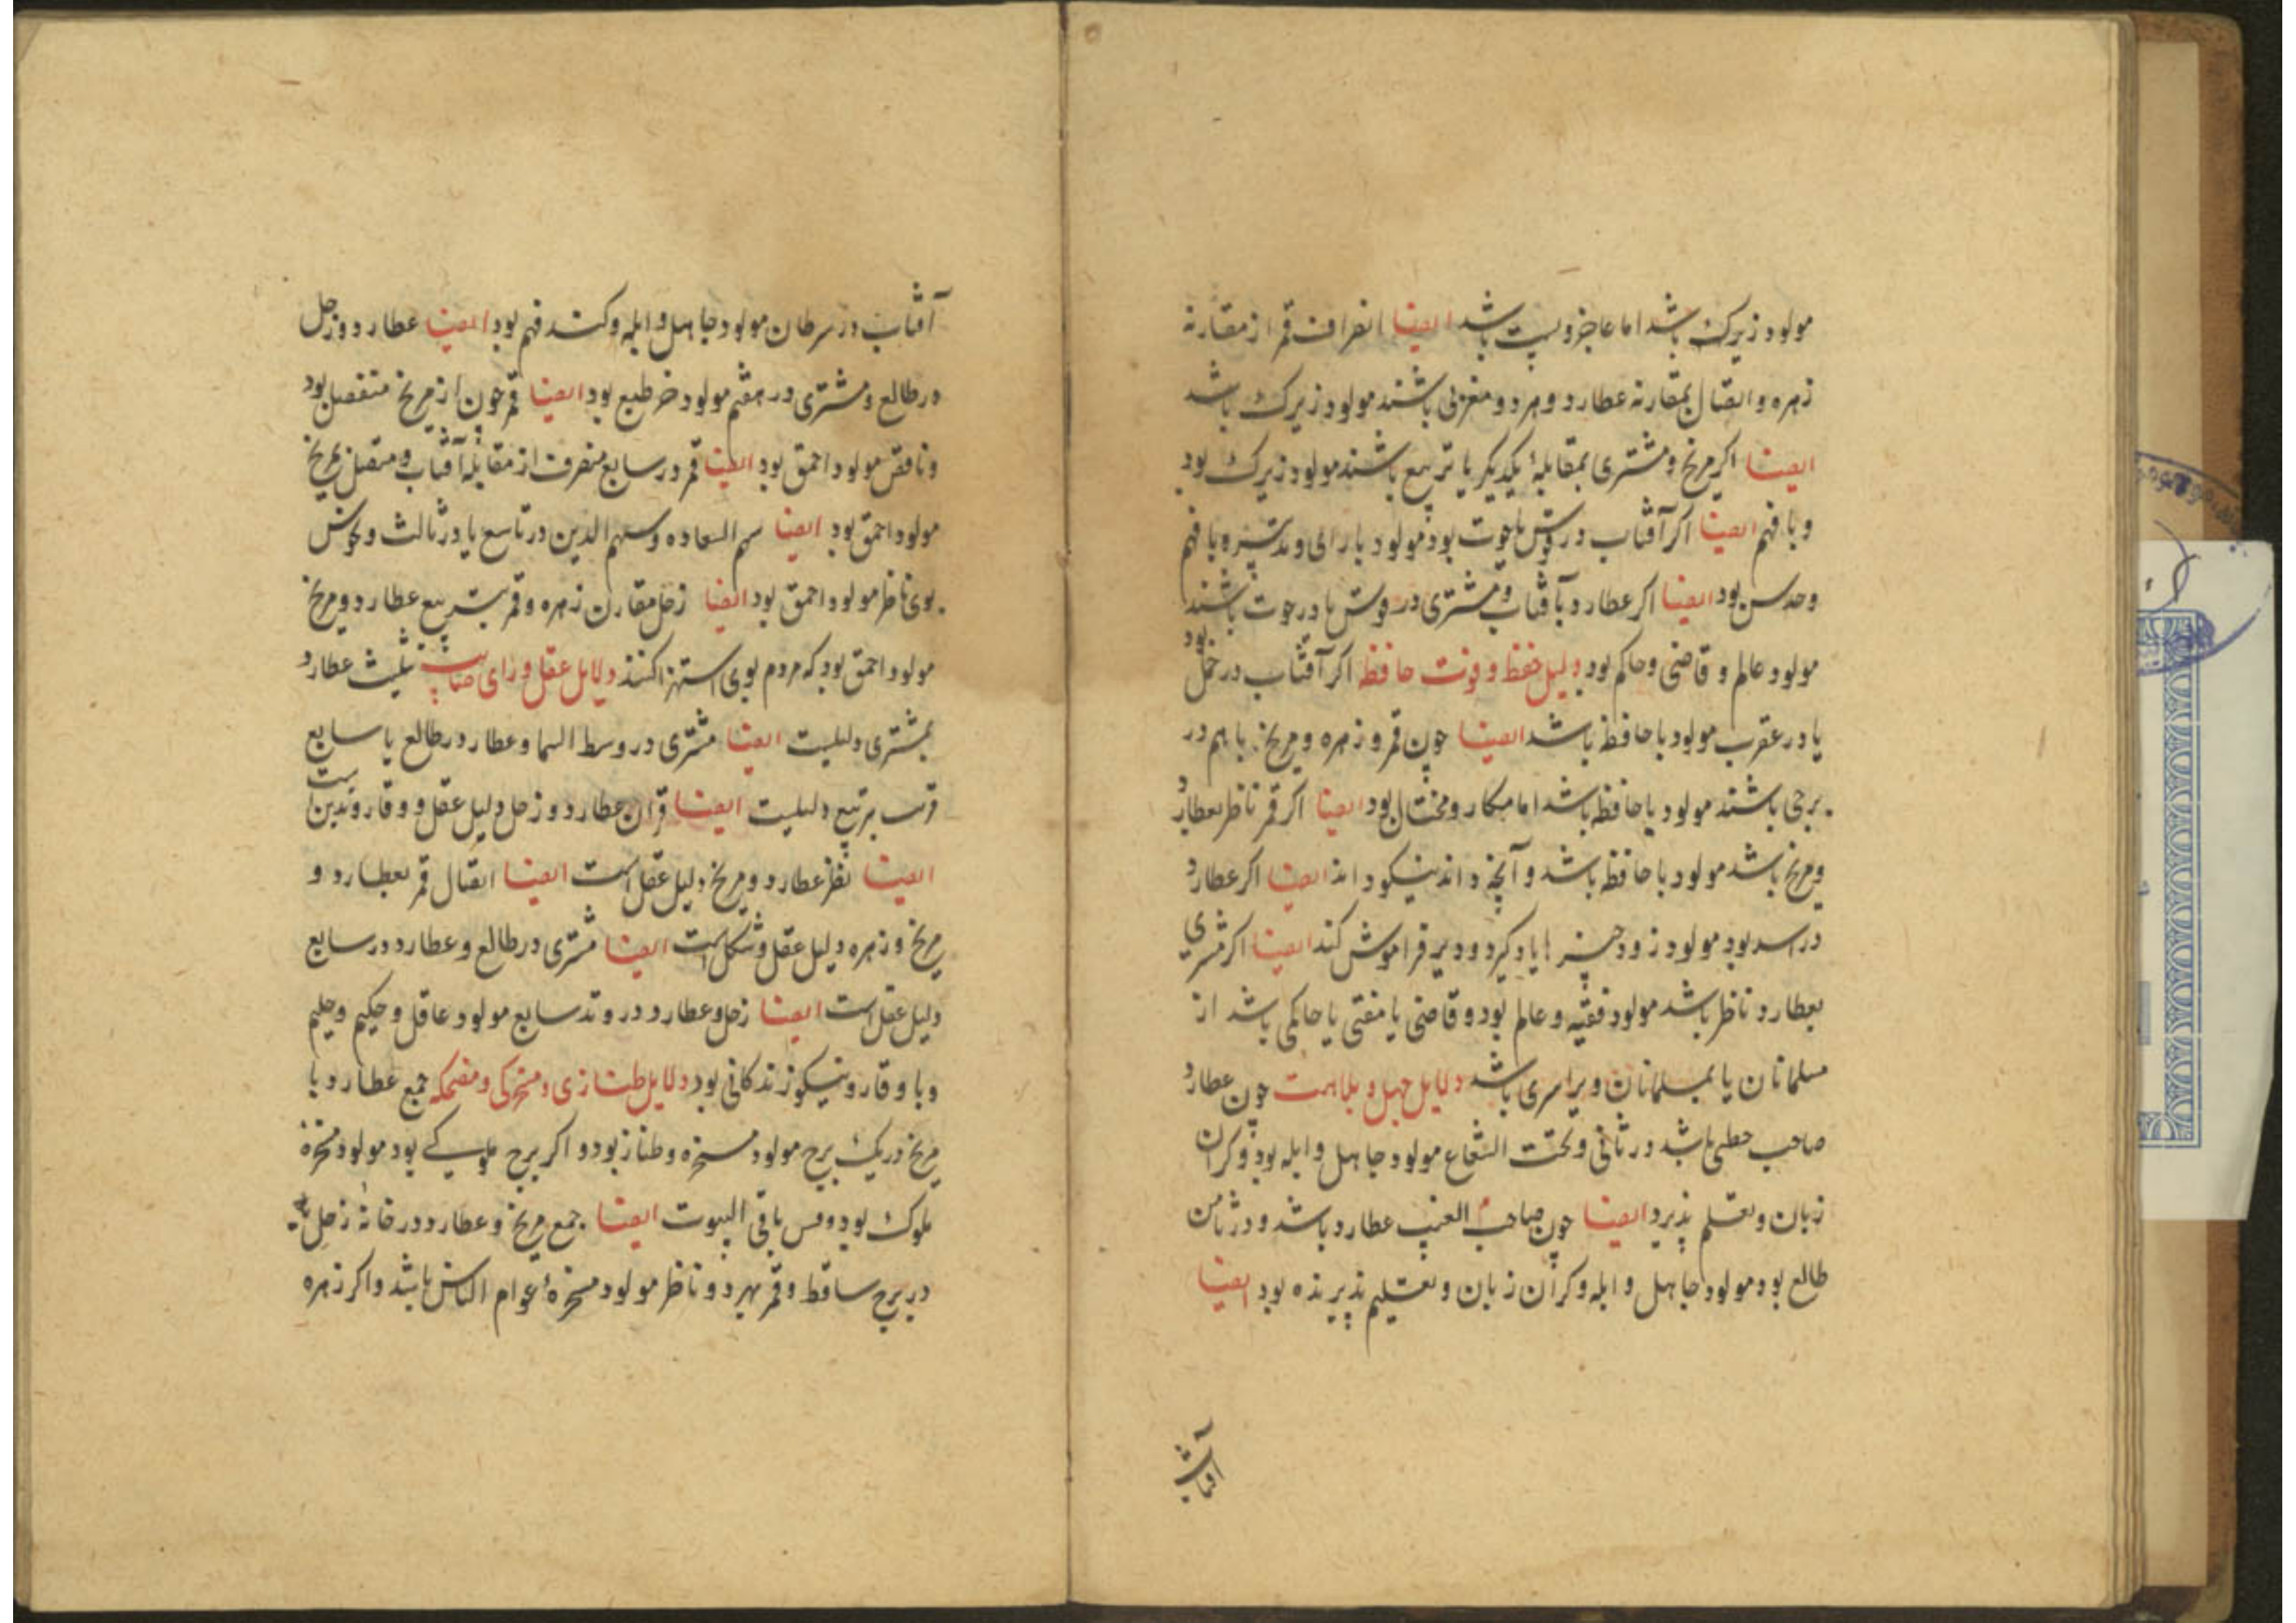 مولود زیرک باشد اما عاجز و پست باشد ایضا انصراف قمر از مقارنه
زهره و اتصال بمقارنه عطارد و هر دو مغربی باشند مولود زیرک باشد
ایضا اکر مریخ و مشتری بمقابلهٔ یکدیکر یا تربیع باشند مولود زیرک بود
و با فهم ایضا اکر آفتاب در قوس یا حوت بود مولود با رای و تدبیر و با فهم
و حدس بود ایضا اکر عطارد با آفتاب و مشتری در قوس یا در حوت باشند
مولود عالم و قاضی و حاکم بود دلیل حفظ و قوت حافظه اکر آفتاب در حمل بود
یا در عقرب مولود با حافظه باشد ایضا چون قمر و زهره و مریخ با هم در
برجی باشند مولود با حافظه باشد اما مکار و محتال بود ایضا اکر قمر ناظر بعطارد
و مریخ باشد مولود با حافظه باشد و آنچه داند نیکو داند ایضا اکر عطارد
در اسد بود مولود زود چیزها یاد کیرد و دیر فراموش کند ایضا اکر مشتری
بعطارد ناظر باشد مولود فقیه و عالم بود و قاضی یا مفتی یا حاکمی باشد از
مسلمانان یا بمسلمانان ویرا سری باشد دلایل جهل و بلاهت چون عطارد
صاحب باشد در ثانی و تحت الشعاع مولود جاهل و ابله بود و کران
زبان و تعلم پذیرد ایضا چون صاحب الغیب عطارد باشد و در ثامن
طالع بود مولود جاهل و ابله و کران زبان و تعلیم پذیرنده بود ایضا
آفتاب
آفتاب در سرطان مولود جاهل و ابله و کند فهم بود ایضا عطارد و زحل
در طالع و مشتری در هفتم مولود خر طبع بود ایضا قمر چون از مریخ منفصل بود
و ناقص مولود احمق بود ایضا قمر در سابع منصرف از مقابله آفتاب و متصل بمریخ
مولود احمق بود ایضا سهم السعاده و سهم الدین در تاسع یا در ثالث و نحوس
بوی ناظر مولود احمق بود ایضا زحل مقارن زهره و قمر بتربیع عطارد و مریخ
مولود احمق بود که مردم بوی استهزا کنند دلایل عقل و رای صایب تثلیث عطارد
بمشتری دلیلیست ایضا مشتری در وسط السما و عطارد در طالع یا سابع
بتربیع دلیلیست ایضا قران عطارد و زحل دلیل عقل و وقار و تدین است
ایضا نظر عطارد و مریخ دلیل عقل است ایضا اتصال قمر بعطارد و
مریخ و زهره دلیل عقل و شکل است ایضا مشتری در طالع و عطارد در سابع
دلیل عقل است ایضا زحل و عطارد در وتد سابع مولود عاقل و حکیم و حلیم
و با وقار و نیکو زندکانی بود دلایل طنازی و مسخرکی و مضحکه جمع عطارد با
مریخ در یک برج مولود مسخره و طناز بود و اکر برج ملوکی بود مولود مسخرهٔ
ملوک بود و قس باقی البیوت ایضا جمع مریخ و عطارد در خانه زحل
در برج ساقط و قمر بهر دو ناظر مولود مسخرهٔ عوام الناس باشد و اکر زهره